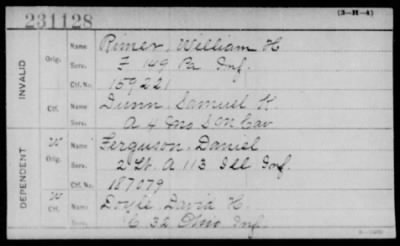 231128
(3-H-4)
Orig. Name Rimer, William H
Serv. F 149 Pa Inf.
Ctf. No. 159221
Ctf. Name Dunn, Samuel K.
Serv. A 4 Mo S M Cav
Orig. W Name Ferguson, Daniel
Serv. 2 Lt. A 113 Ill Inf.
Ctf. No. 187079
Ctf. W Name Doyle, David H.
Serv. C 32 Ohio Inf.
INVALID
DEPENDENT